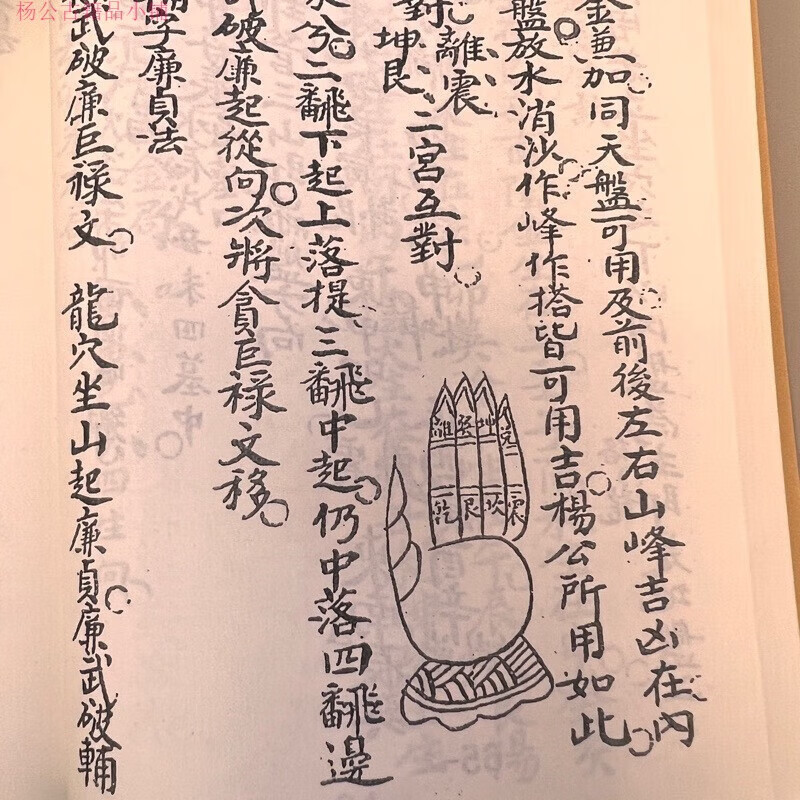 杨公古籍品小铺
金兼加同天盤可用及前後左右山峰吉凶在內
盤放水消沙作峰作塔皆可用吉楊公所用如此
離震
對坤艮二宮互對
離 巽 坤 兌
乾 艮 坎 震
兮二翻下起上落提三翻中起仍中落四翻邊
破廉起從向次將貪巨祿文移
字廉貞法
武破廉巨祿文 龍穴坐山起廉貞廉武破輔